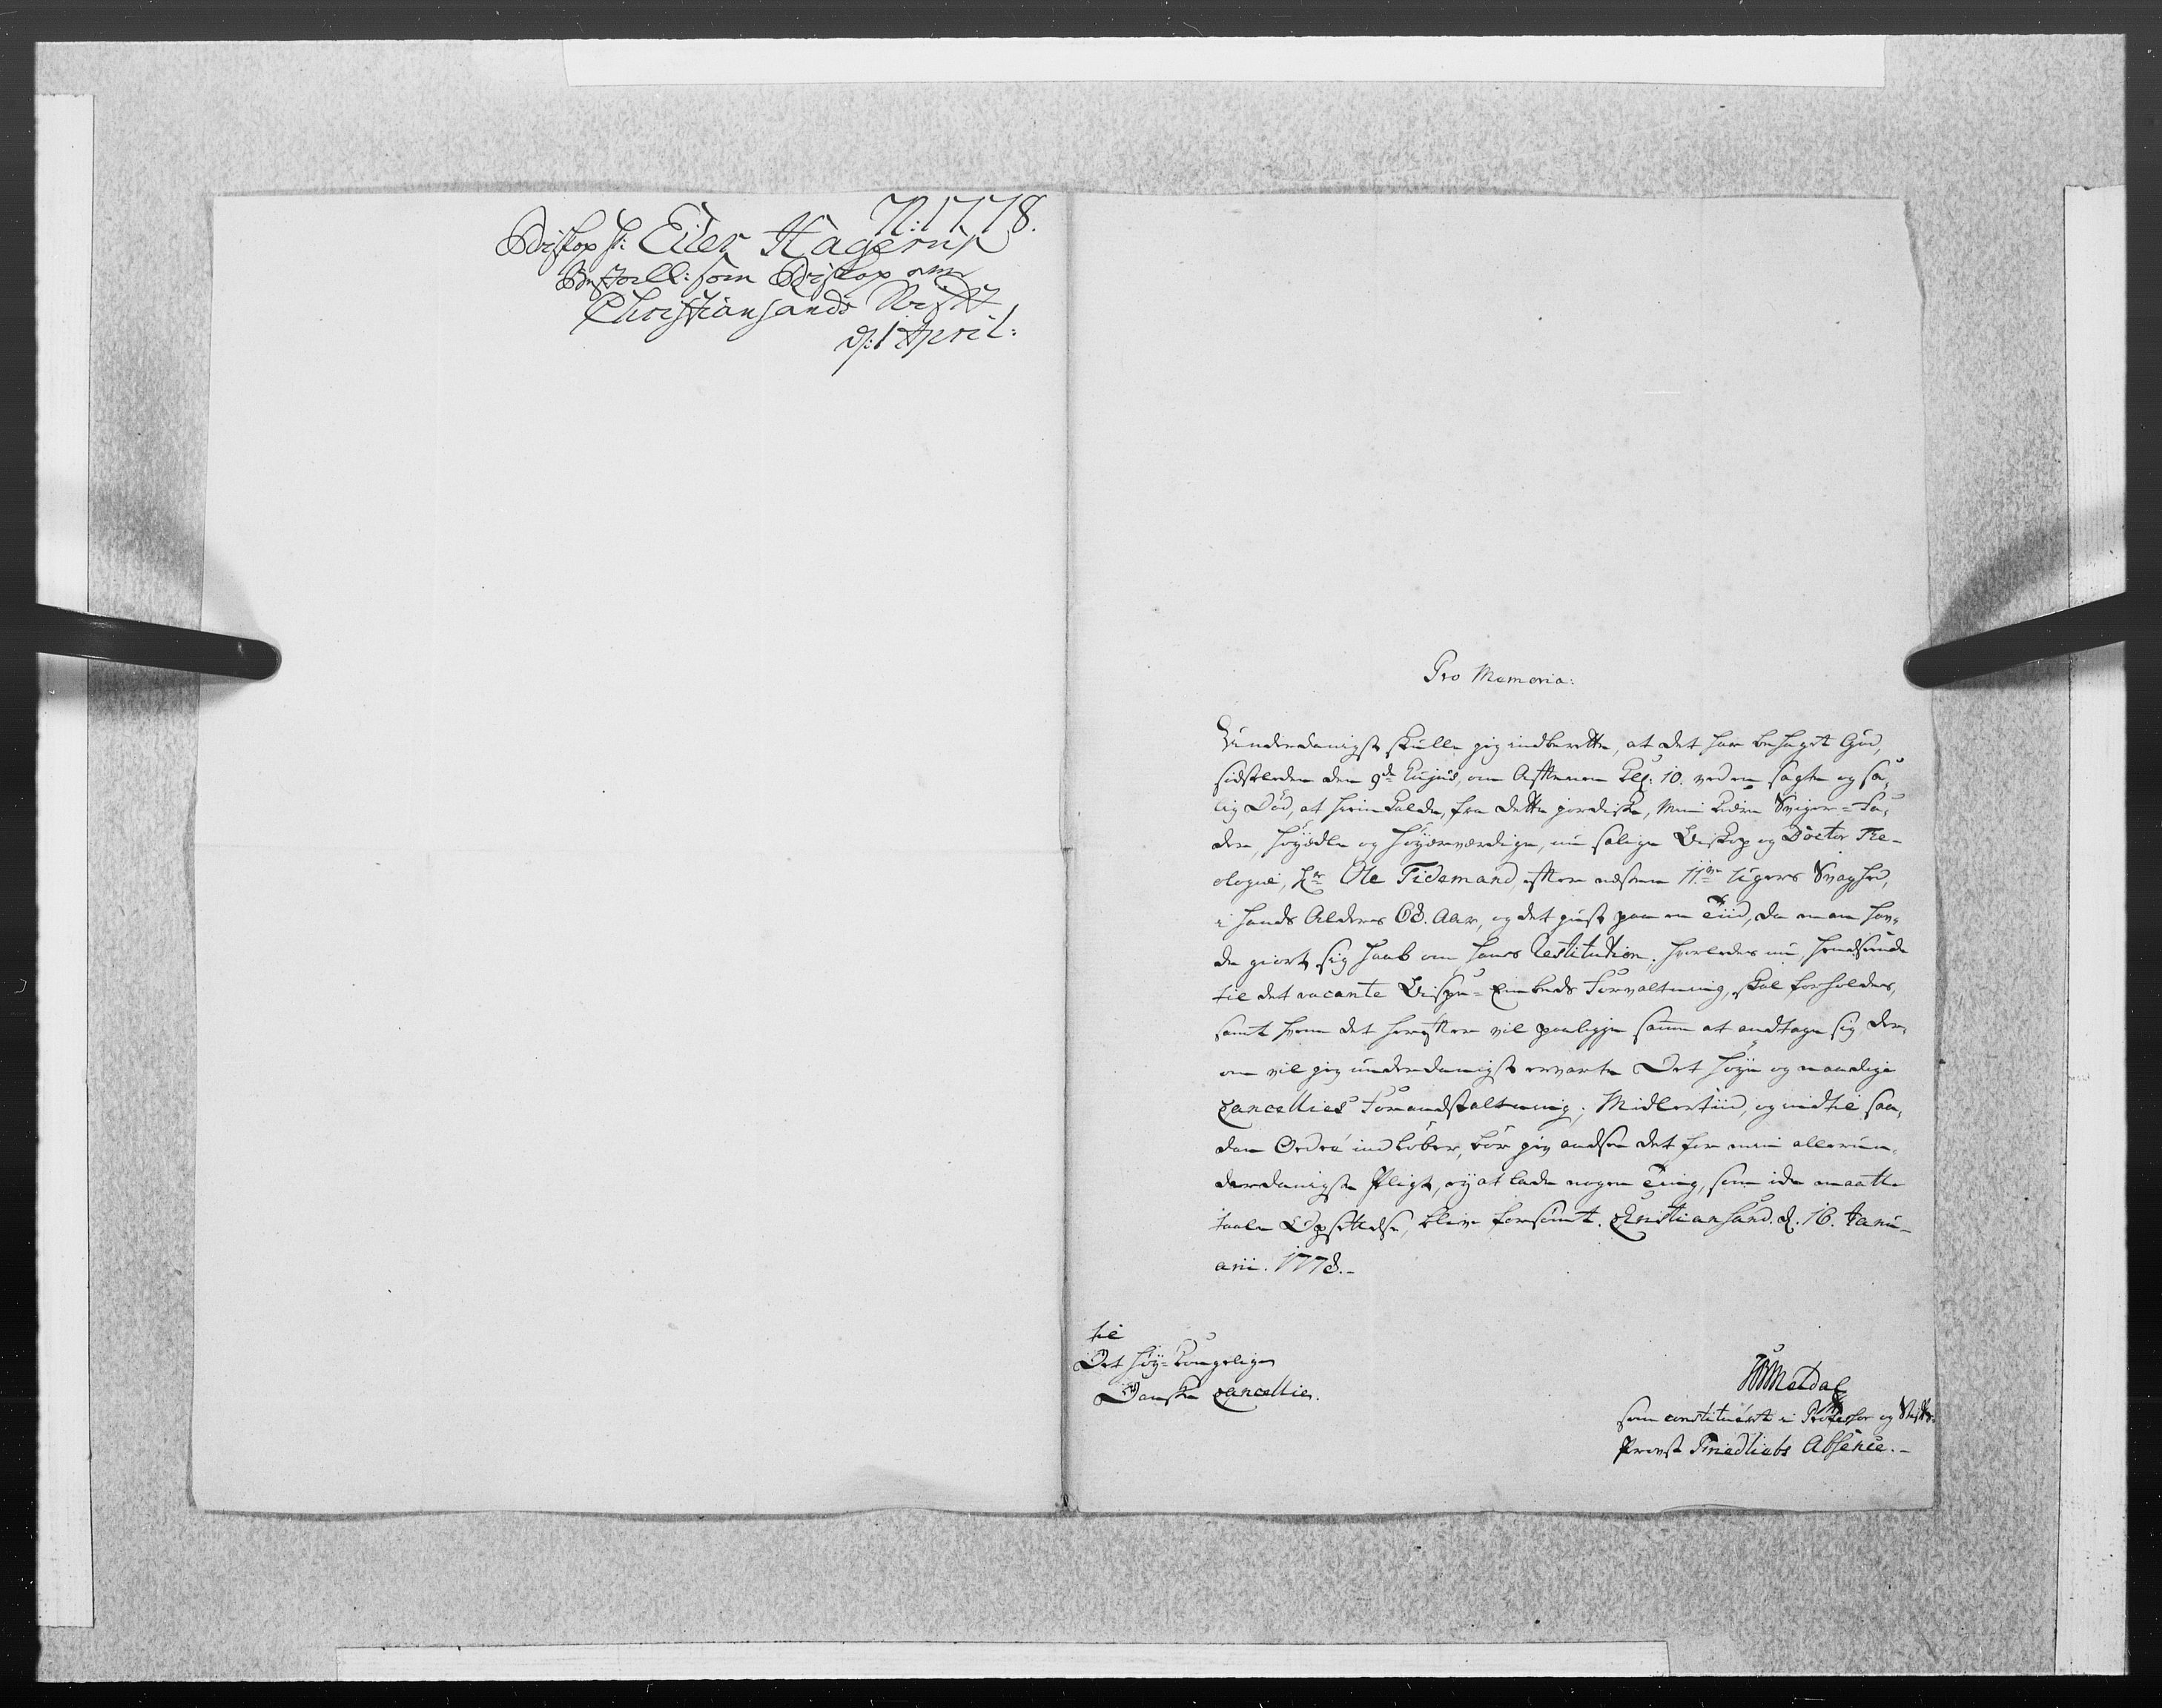 N: 1778.
Biskop H: Eiler Hagerup
Bestall: som Biskop over
Christiansands Stift
d: 1 April:
Pro Memoria:
Underdanigst skulle jeg indberette, at det har behaget Gud,
sidstleden den 9de Hujus, om Aftenen Kl: 10. ved en sagte og sa,,
lig Død, at hiemkalde, fra dette jordiske, Min kiære Sviger=Fa,,
der, Høyædle og Høyærværdige, nu salige Biskop og Doctor The-
ologiæ, Hr Ole Tidemand, efter næsten 11ve Ugers Svaghed,
i hands Alders 68. Aar, og det just paa en Tiid, da man hav,,
de giort sig Haab om hans Restitution. Hvorledes nu, henseende
til det vacante Bispe=Embeds Forvaltning, skal forholdes,
samt hvem det herefter vil paaligge samme at andtage sig, der,,
om vil jeg underdanigst ervarte Det høye og naadige
Cancellies Foranstaltning; Midlertiid, og indtil saa,,
dan Ordre indløber, bør jeg andsee det for min allerun,,
derdanigste Pligt, ey at lade nogen Ting, som ikke maatte
taale Opsættelse, blive forsømt. Christiansand. d. 16. Janu-
arii. 1778.-
til
Det Høy=Kongelige
Danske Cancellie.
Meldal
som constitueret i Professor og Stifts-
Provst Friedliebs Absence.-